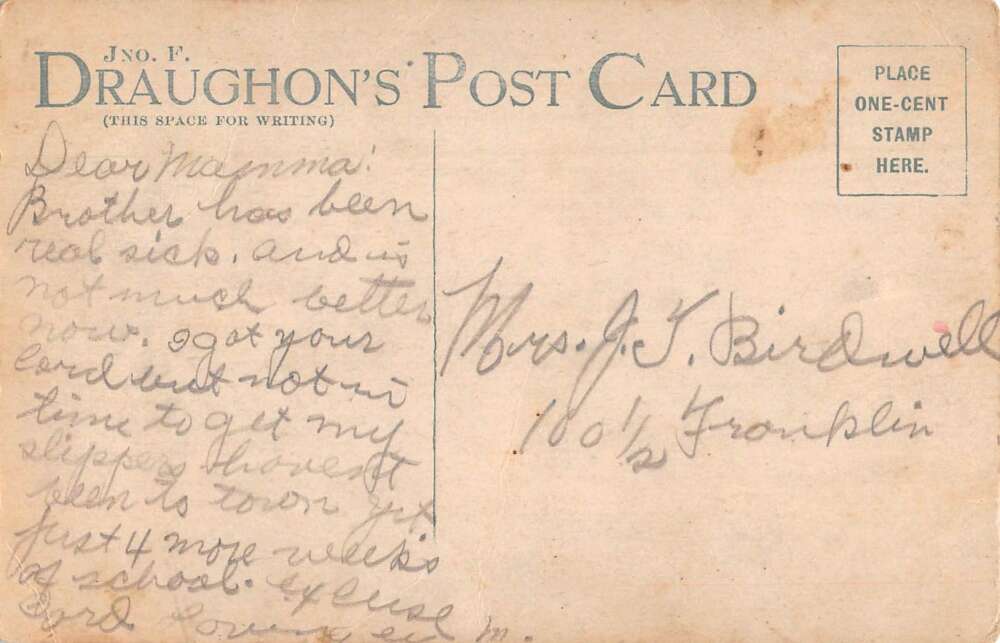 JNO. F.
DRAUGHON'S POST CARD
(THIS SPACE FOR WRITING)
PLACE
ONE-CENT
STAMP
HERE.
Dear Mamma:
Brother has been
real sick. and is
not much better
now. I got your
card but not in
time to get my
slippers havent
been to town yet
just 4 more weeks
of school. Excuse
Card
M.
Mrs. J. T. Birdwell
100 1/2 Franklin